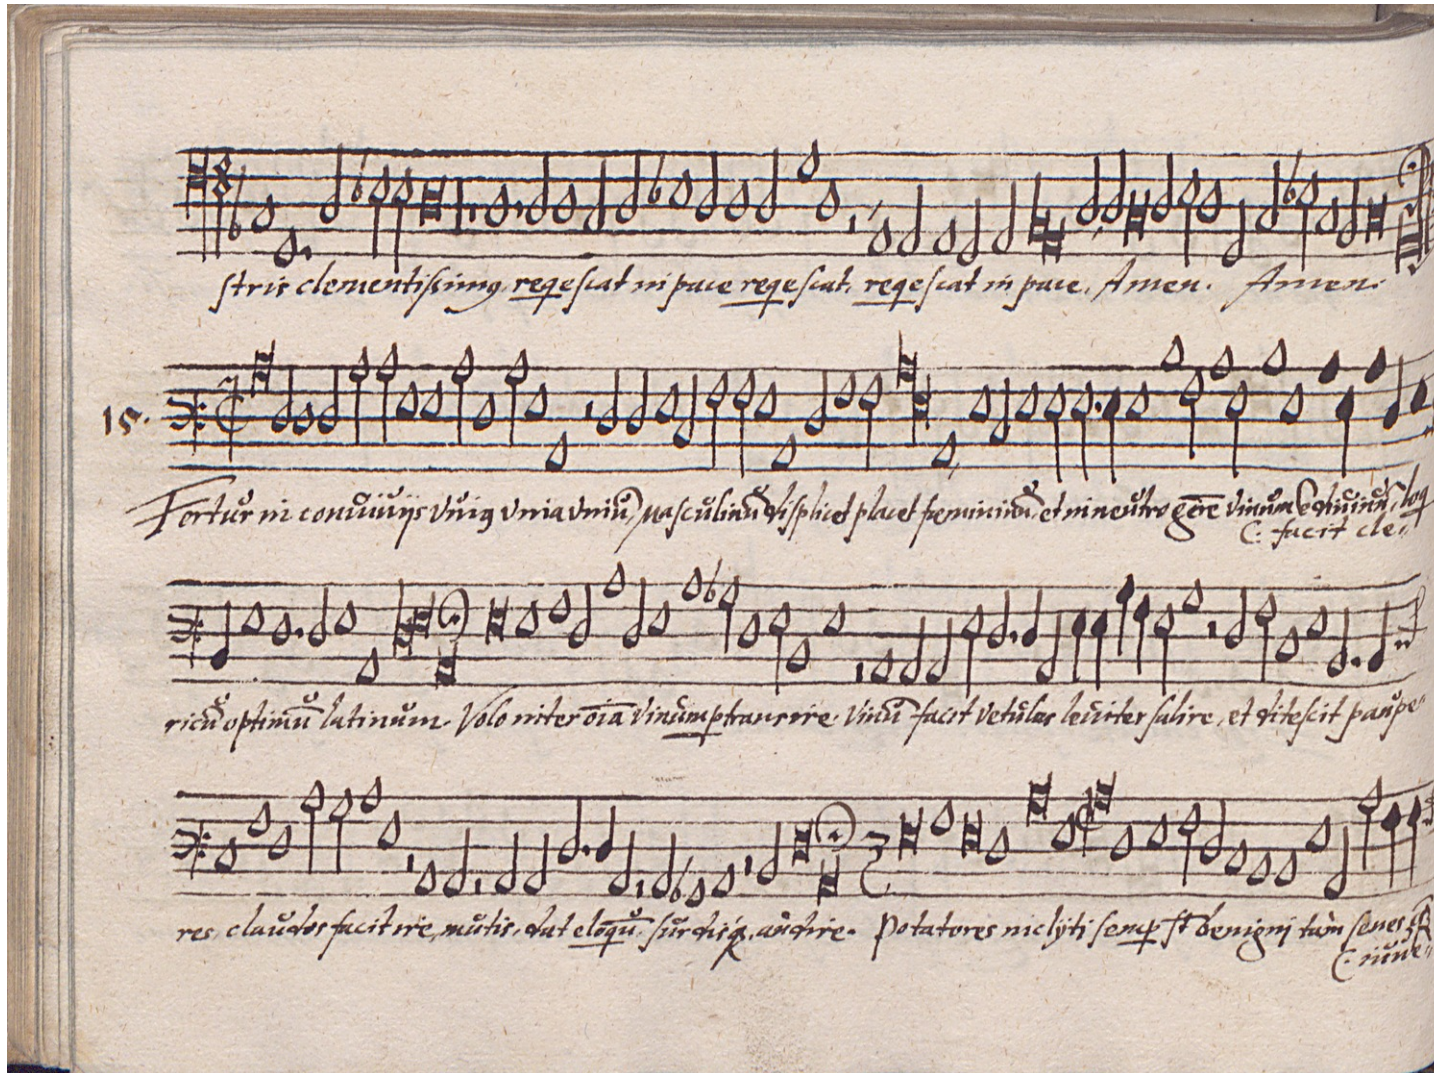 stris clementissimꝯ, reqescat in pace reqescat, reqescat in pace. Amen. Amen.
15.
Fertur in conuiuijs vniꝯ vnia vniũ, Masculinũ displicet placet fęmininũ, et in neutro gñre vinum ẽ diuinũ, loq
C: facit cle„
ricũ optimũ latinum. Volo inter oĩa vinum ptransire. Vinũ facit vetulas leuiter salire, et ditescit paupe„
res, claudos facit ire, mutis, dat eloqũ, surdisq̃, audire. Potatores inclyti semp st benigni tam senes q̃
C: iuue„